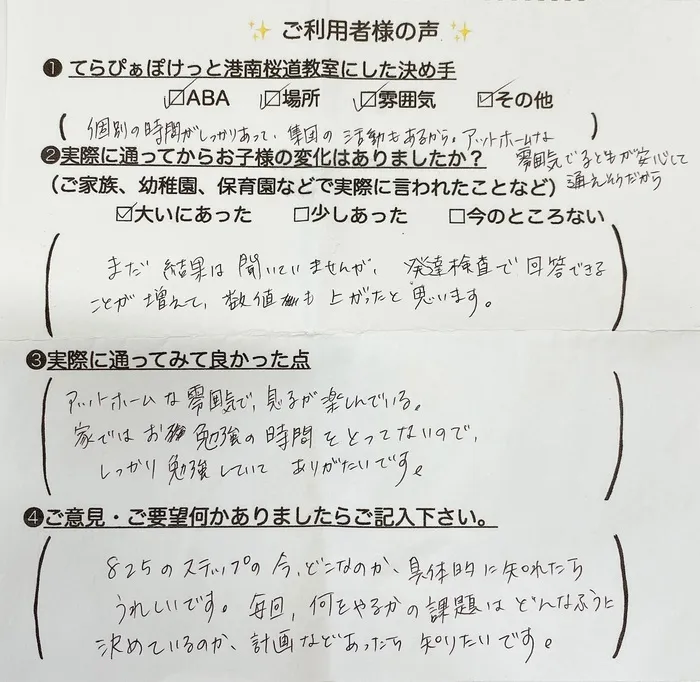 ✨ ご利用者様の声 ✨
❶ てらぴぁぽけっと港南桜道教室にした決め手
☑ABA ☑場所 ☑雰囲気 ☑その他
(個別の時間がしっかりあって、集団の活動もあるから。アットホームな
雰囲気で子どもが安心して
通えそうだから)
❷実際に通ってからお子様の変化はありましたか？
(ご家族、幼稚園、保育園などで実際に言われたことなど)
☑大いにあった □少しあった □今のところない
まだ結果は聞いていませんが、発達検査で回答できる
ことが増えて、数値も上がったと思います。
❸実際に通ってみて良かった点
アットホームな雰囲気で、息子が楽しんでいる。
家ではお勉強の時間をとってないので、
しっかり勉強していて ありがたいです。
❹ご意見・ご要望何かありましたらご記入下さい。
825のステップの今、どこなのか、具体的に知れたら
うれしいです。毎回、何をやるかの課題はどんなふうに
決めているのか、計画などあったら知りたいです。